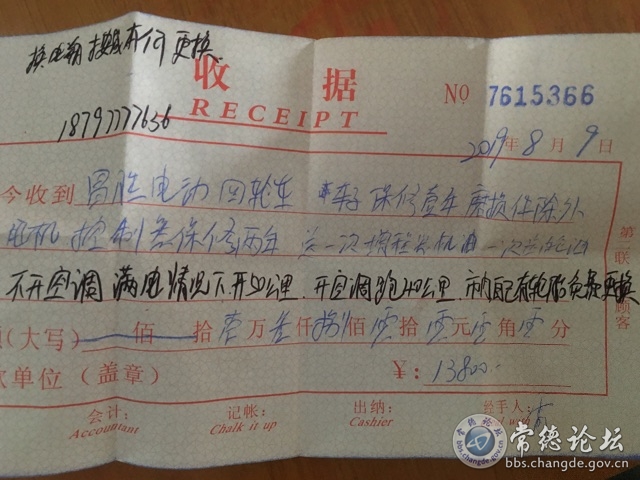 更换
收 据
RECEIPT
NO 7615366
18797777656
2019年8月9日
今收到 电动四轮车 车子保修壹年 磨损件除外
电机 控制器保修两年 送一次 机油 一次
不开空调 满电情况下开50公里. 开空调跑40公里. 更换
(大写) 佰 拾壹万叁仟捌佰零拾零元零角零分
款单位(盖章) ¥: 13800.
会计: 记帐: 出纳: 经手人:
Accountant Chalk it up Cashier
第二联 顾客
常德论坛
bbs.changde.gov.cn